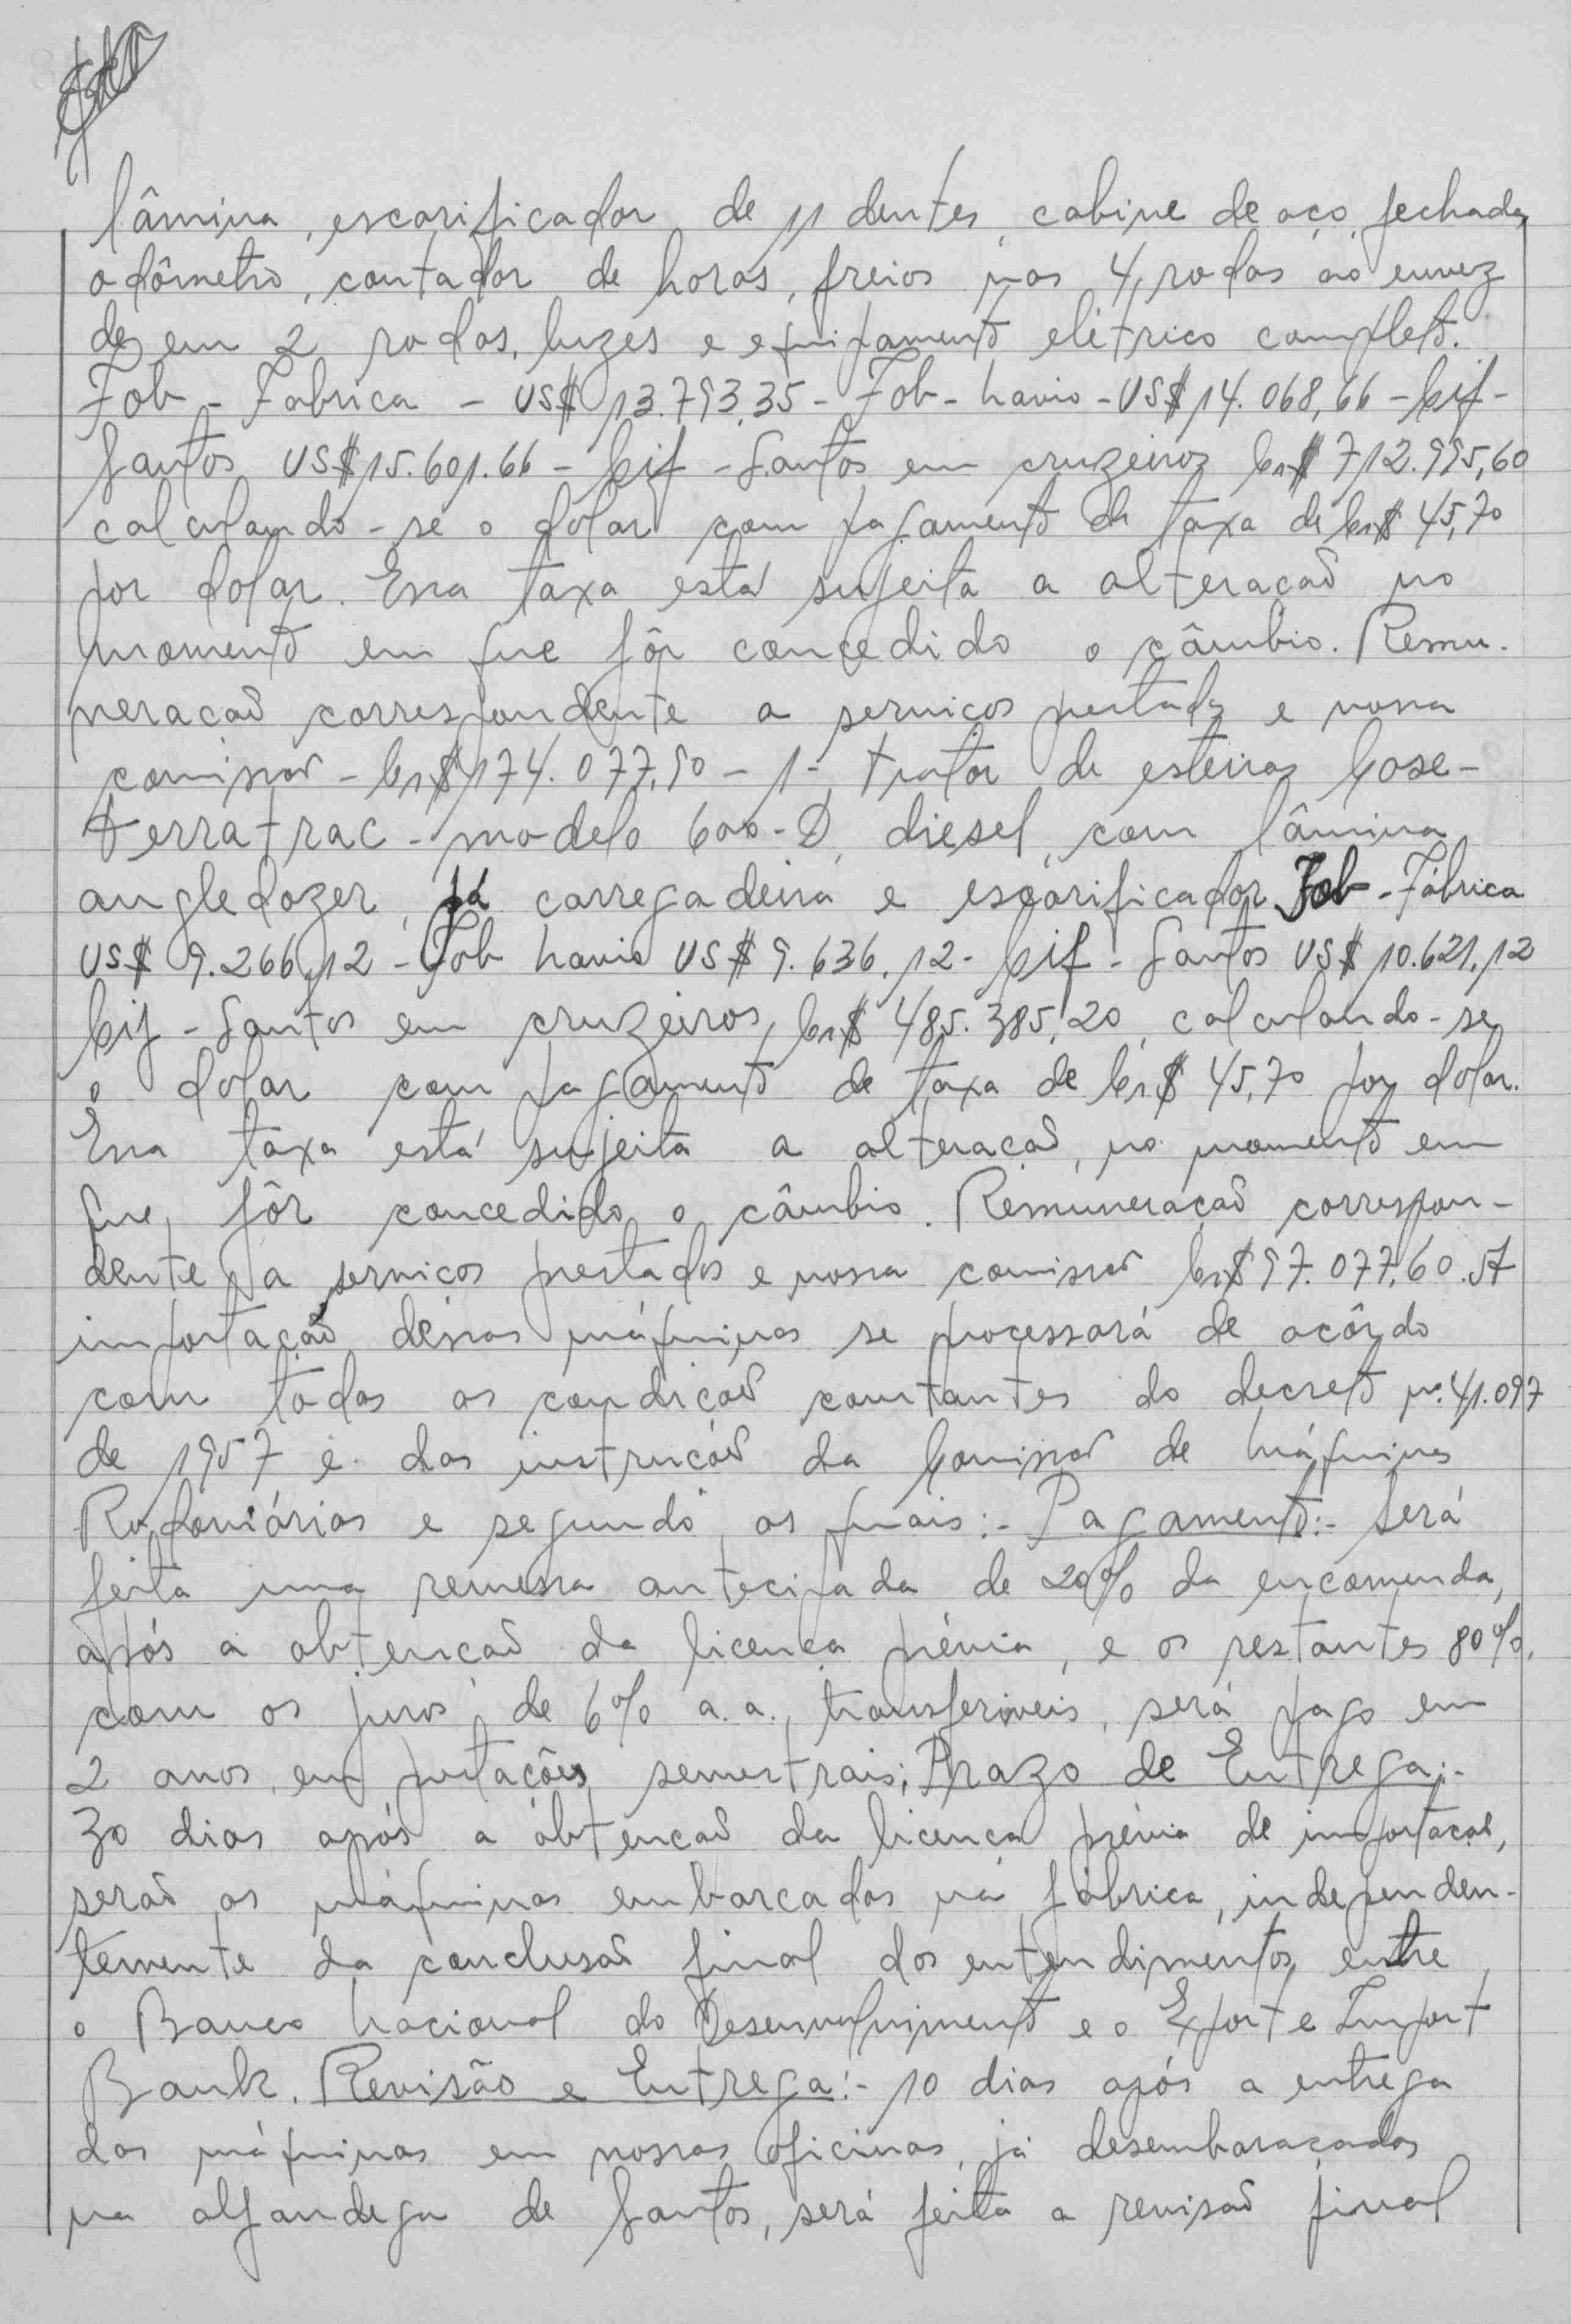 lâmina, escarificador de 11 dentes, cabine de aço fechada,
odômetro, contador de horas, freios nas 4 rodas ao envez
de em 2 rodas, luzes e equipamento elétrico completo.
Fob - Fabrica - US$ 13.793,35 - Fob - navio - US$ 14.068,66 - Cif -
Santos US$ 15.601.66 - Cif - Santos em cruzeiros Cr$ 712.995,60
calculando-se o dolar com pagamento de taxa de Cr$ 45,70
por dolar. Essa taxa está sujeita a alteração no
momento em que fôr concedido o câmbio. Remu-
neração correspondente a serviços prestados e nossa
comissão - Cr$ 174.077,90 - 1 - trator de esteiras Case -
terratrac - modelo 600-D, diesel, com lâmina
angledozer, pá carregadeira e escarificador Fob - Fábrica
US$ 9.266,12 - Fob navio US$ 9.636,12 - Cif - Santos US$ 10.621,12
Cif - Santos em cruzeiros, Cr$ 485.385,20, calculando-se
o dolar com pagamento de taxa de Cr$ 45,70 por dolar.
Essa taxa está sujeita a alteração, no momento em
que fôr concedido o câmbio. Remuneração correspon-
dente a serviços prestados e nossa comissão Cr$ 97.077,60. A
importação dessas máquinas se processará de acôrdo
com todas as condições constantes do decreto nº. 41.097
de 1957 e das instruções da Comissão de Máquinas
Rodoviárias e segundo as quais:- Pagamento:- Será
feita uma remessa antecipada de 20% da encomenda,
após a obtenção da licença prévia, e os restantes 80%,
com os juros de 6% a.a., transferiveis, será pago em
2 anos, em prestações semestrais; Prazo de Entrega:-
30 dias após a obtenção da licença prévia de importação,
serão as máquinas embarcadas na fábrica, independen-
temente da conclusão final dos entendimentos entre
o Banco Nacional do Desenvolvimento e o Export e Import
Bank. Revisão e Entrega:- 10 dias após a entrega
das máquinas em nossas oficinas, já desembaraçadas
na alfandega de Santos, será feita a revisão final